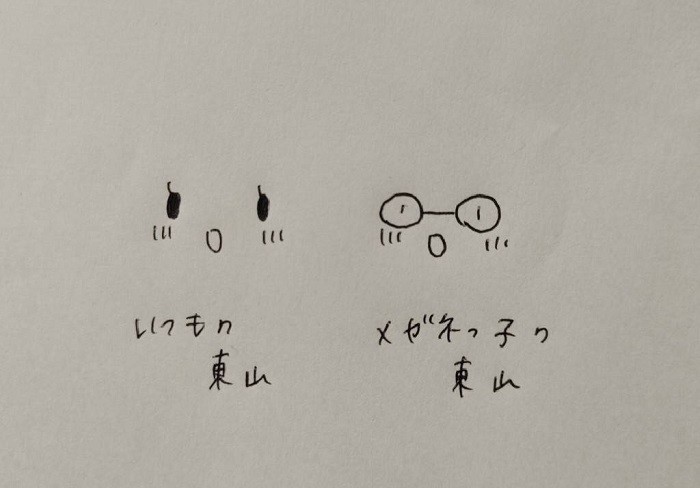 いつもの
東山
メガネっ子の
東山